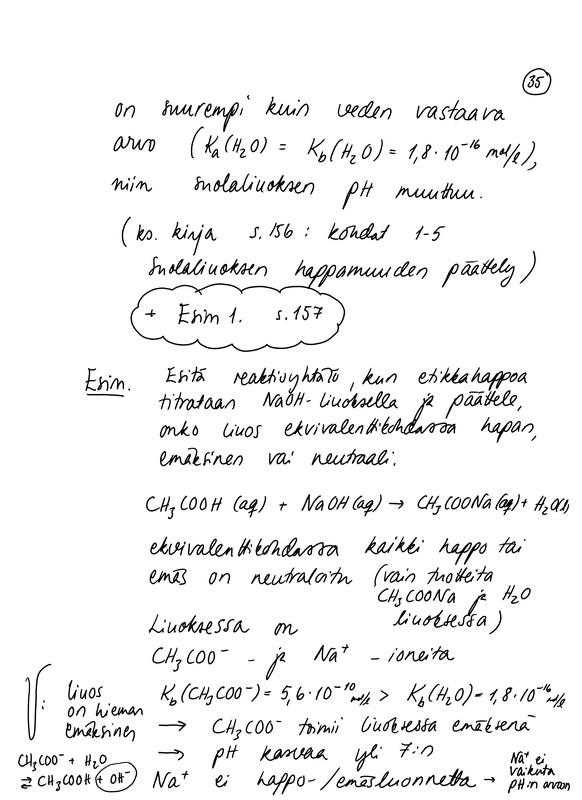 35
on suurempi kuin veden vastaava
arvo (Ka(H₂O) = Kb(H₂O) = 1,8·10⁻¹⁶ mol/l),
niin suolaliuoksen pH muuttuu.
(ks. kirja s.156 : kohdat 1-5
suolaliuoksen happamuuden päättely)
+ Esim 1. s.157
Esim. Esitä reaktioyhtälö, kun etikkahappoa
titrataan NaOH-liuoksella ja päättele,
onko liuos ekvivalenttikohdassa hapan,
emäksinen vai neutraali.
CH₃COOH (aq) + NaOH(aq) → CH₃COONa(aq) + H₂O(l)
ekvivalenttikohdassa kaikki happo tai
emäs on neutraloitu (vain tuotteita
CH₃COONa ja H₂O
liuoksessa)
Liuoksessa on
CH₃COO⁻ - ja Na⁺ - ioneita
V: liuos on hieman emäksinen
Kb(CH₃COO⁻) = 5,6·10⁻¹⁰ mol/l > Kb(H₂O) = 1,8·10⁻¹⁶ mol/l
→ CH₃COO⁻ toimii liuoksessa emäksenä
→ pH kasvaa yli 7:n
CH₃COO⁻ + H₂O
⇄ CH₃COOH + OH⁻
Na⁺ ei happo-/emäsluonnetta → Na⁺ ei vaikuta pH:n arvoon